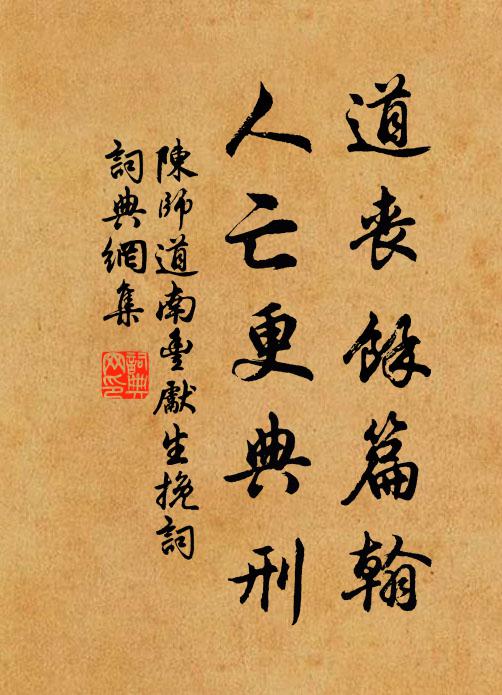 道喪餘篇翰
人亡更典刑
陳師道南豐獻生挽詞
詞典網集
詞典網印